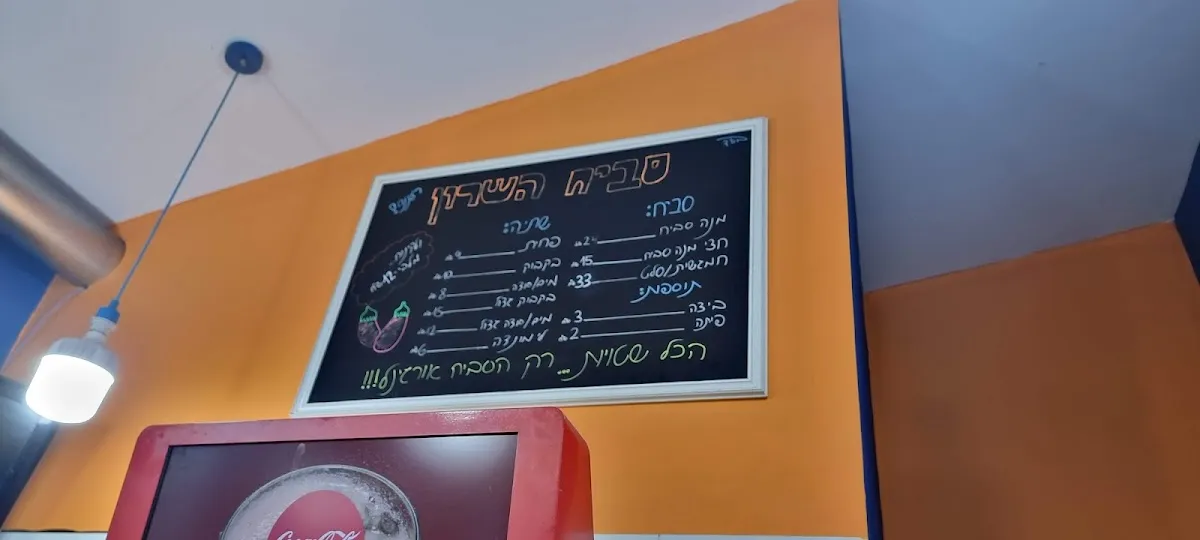 סביח השרון
סביח:
מנה סביח 24
חצי מנה סביח 15
חמגשית/סלט 33
תוספת:
ביצה 3
פיתה 2
שתיה:
פחית 9
בקבוק 10
מים/סודה 8
בקבוק גדול 15
מים/סודה גדול 12
לימונדה 6
הכל שטויות... רק הסביח אורגינל!!!
Coca-Cola